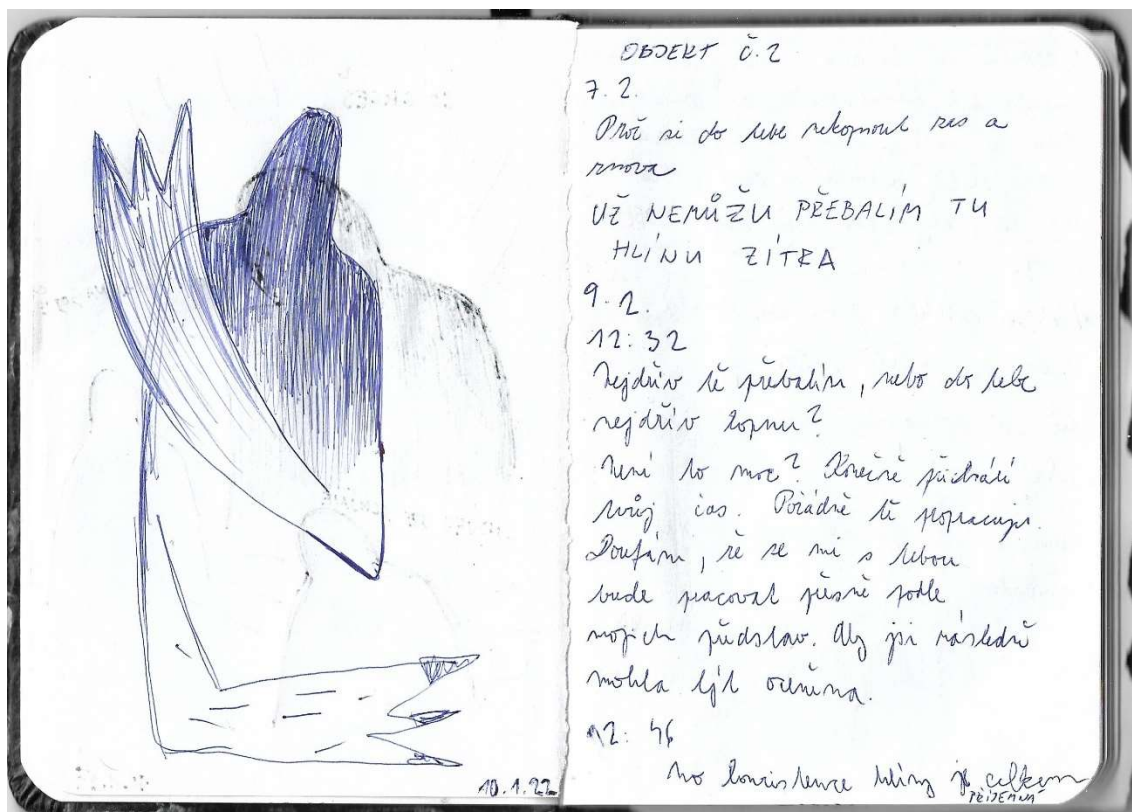 10.1.22
OBJEKT č.2
7.2.
Proč si do tebe nekopnout zas a
znova
UŽ NEMŮŽU PŘEBALÍM TU
HLÍNU ZÍTRA
9.2.
12:32
Nejdřív tě přebalím, nebo do tebe
nejdřív kopnu?
Není to moc? Konečně přichází
tvůj čas. Pořádně tě propracuju.
Doufám, že se mi s tebou
bude pracovat přesně podle
mojich představ. Aby jsi následně
mohla být oceněna.
12:46
no konzistence hlíny je celkem
PŘÍJEMNÁ